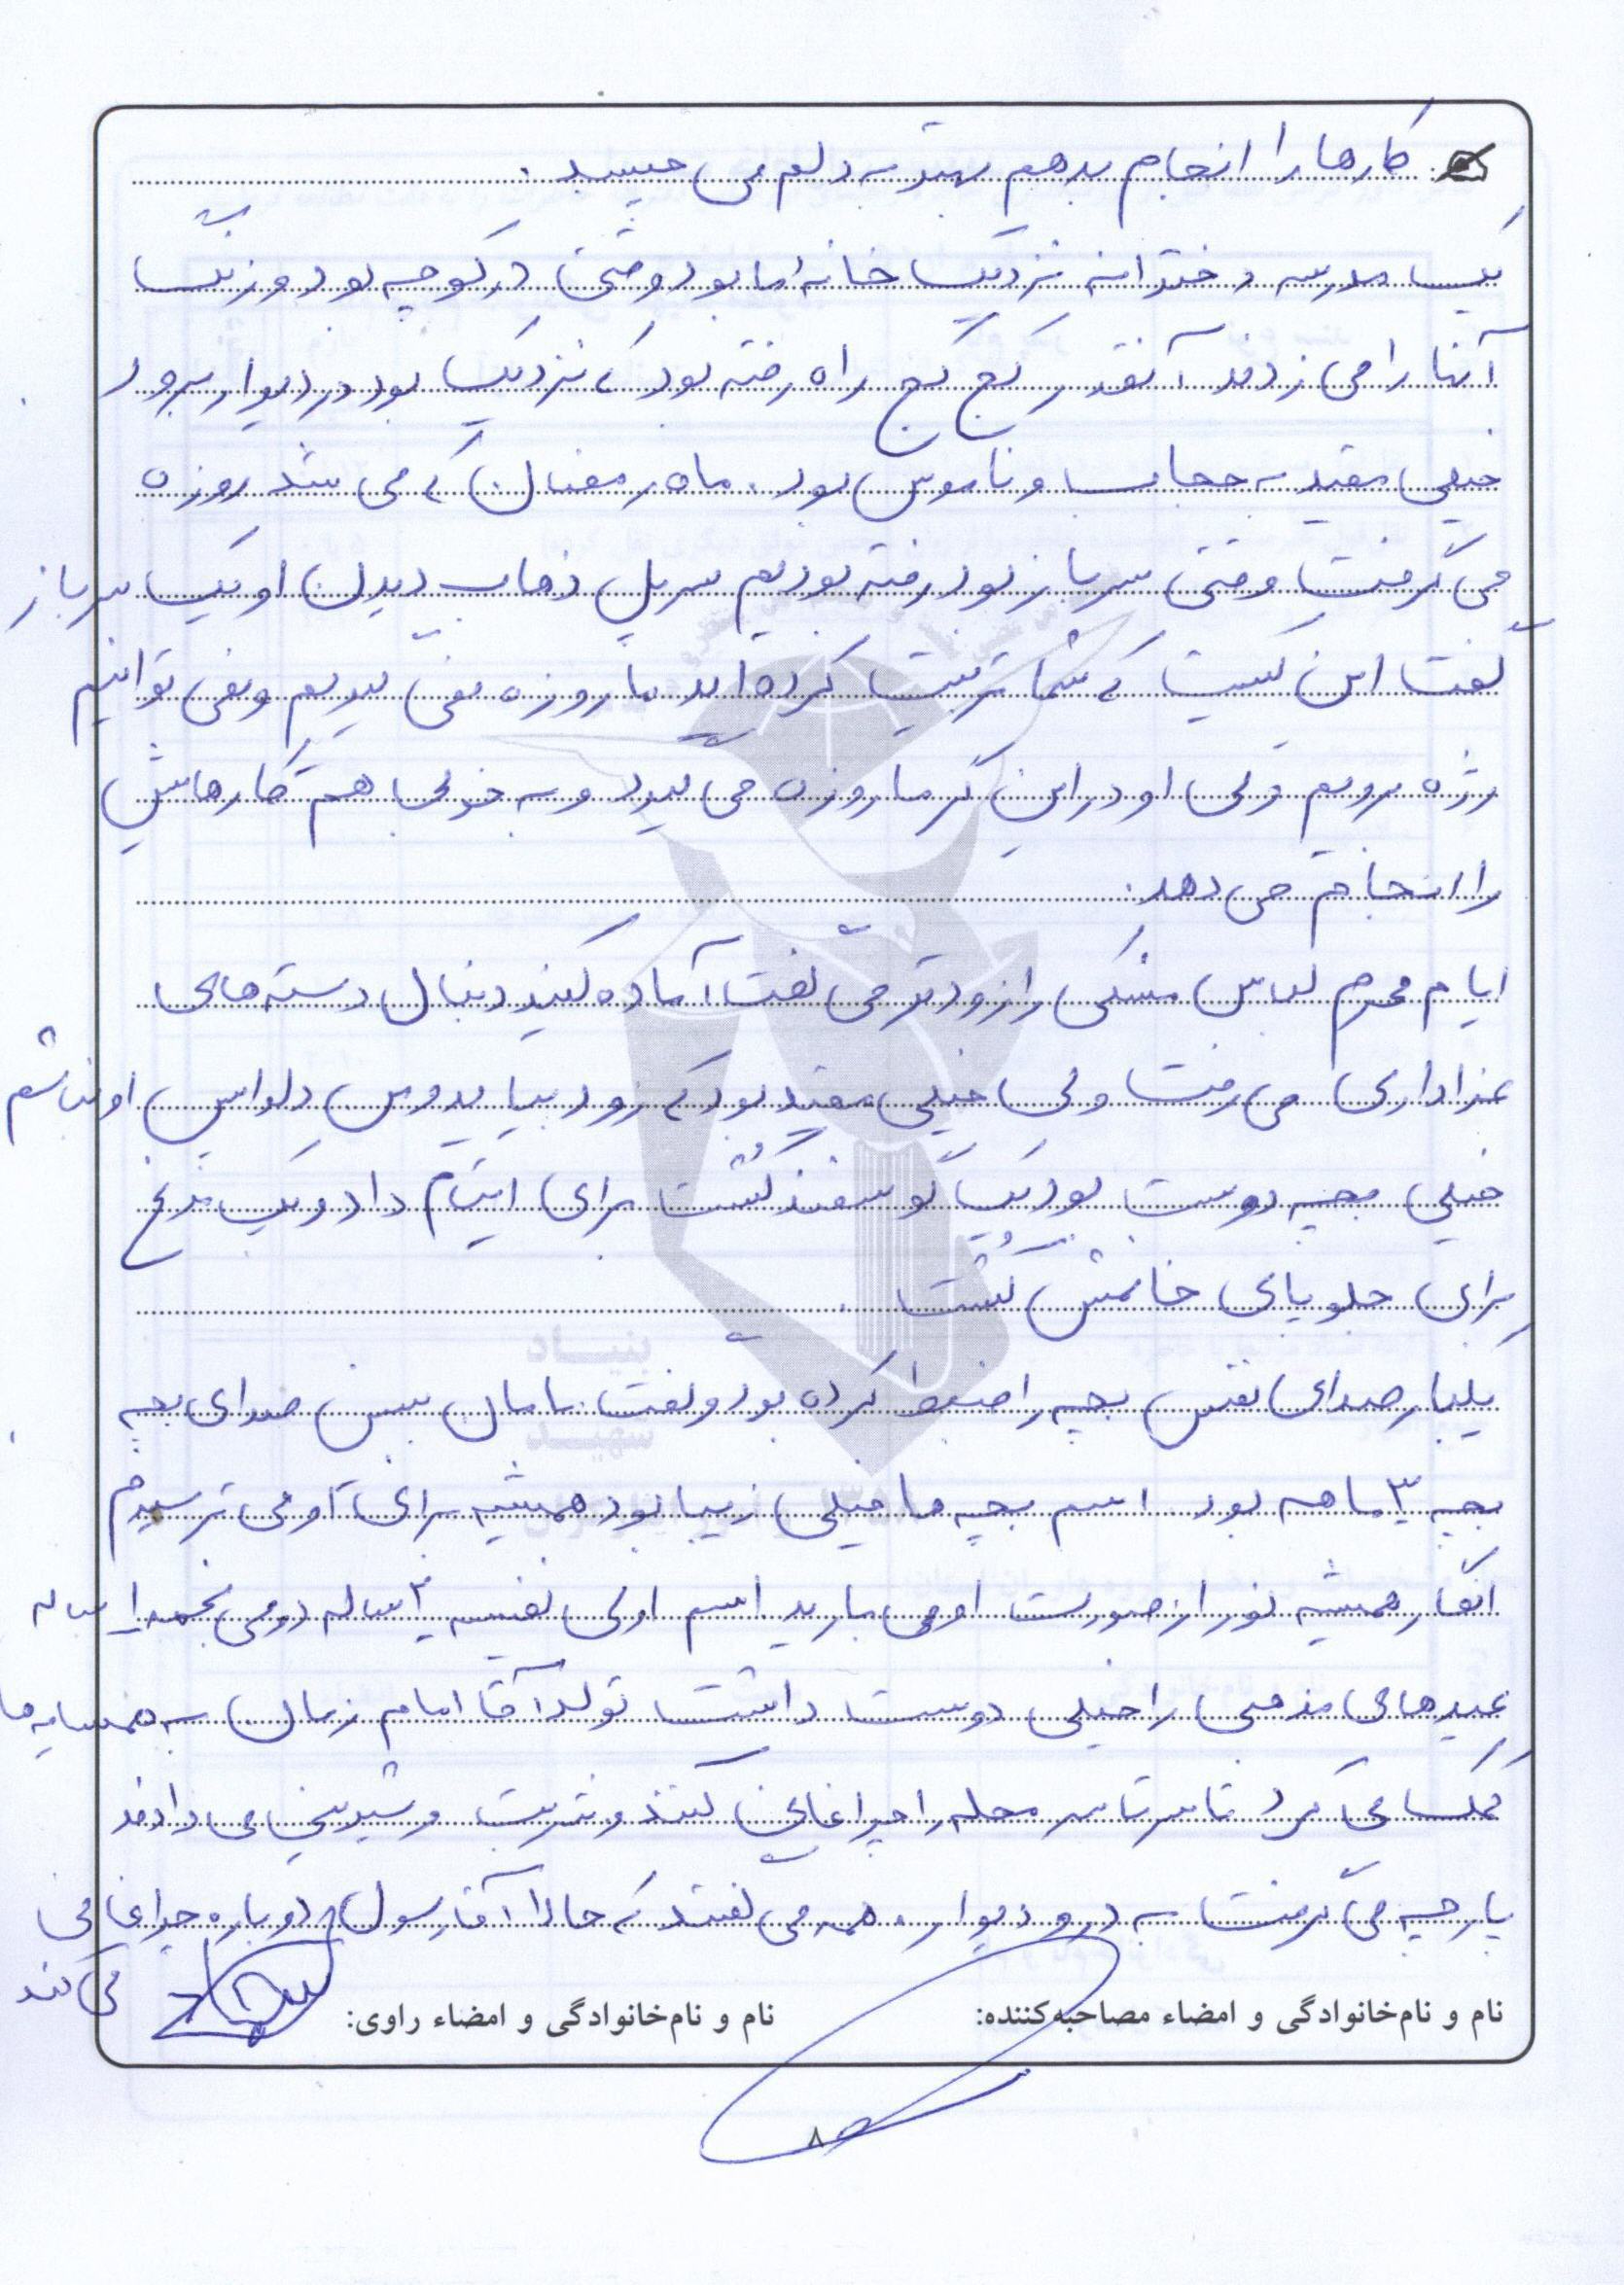 کارها را انجام بدهم بهتر به دلم می چسبد .
یک مدرسه دخترانه نزدیک خانه ما بود وقتی در کوچه بود و زنگ
آنها را می زدند آنقدر کج کج راه رفته بود که نزدیک بود در دیوار برود
خیلی مقید به حجاب و ناموس بود . ماه رمضان که می شد روزه
می گرفت وقتی سرباز بود رفته بودیم سرپل ذهاب دیدن او یک سرباز
گفت این کیست که شما تربیت کرده اید ما روزه نمی گیریم و نمی توانیم
رژه برویم ولی او در این گرما روزه می گیرد و به خوبی هم کارهایش
را انجام می دهد .
ایام محرم لباس مشکی را زودتر می گفت آماده کنید دنبال دسته های
عزاداری می رفت ولی خیلی مقید بود که زود بیاید دلواپس او نباشم
خیلی بچه دوست بود یک گوسفند کشت برای ایتام داد و یک مرغ
برای جلو پای خانمش کشت .
یکبار صدای نفس بچه را ضبط کرده بود و گفت مامان ببین صدای بچه
بچه ۳ ماهه بود . اسم بچه ما خیلی زیبا بود همیشه برای او می ترسیدم
انگار همیشه نور از صورت او می بارید اسم اولی نفیسه ۳ ساله دومی نجمه ۱ ساله
عیدهای مذهبی را خیلی دوست داشت تولد آقا امام زمان به همسایه ها
کمک می کرد تا سرتاسر محله را چراغانی کنند و شربت و شیرینی می دادند
پارچه می گرفت به در و دیوار . همه می گفتند که حالا آقا رسول دوباره چراغانی
می کند
نام و نام‌خانوادگی و امضاء مصاحبه‌کننده: نام و نام‌خانوادگی و امضاء راوی:
۸